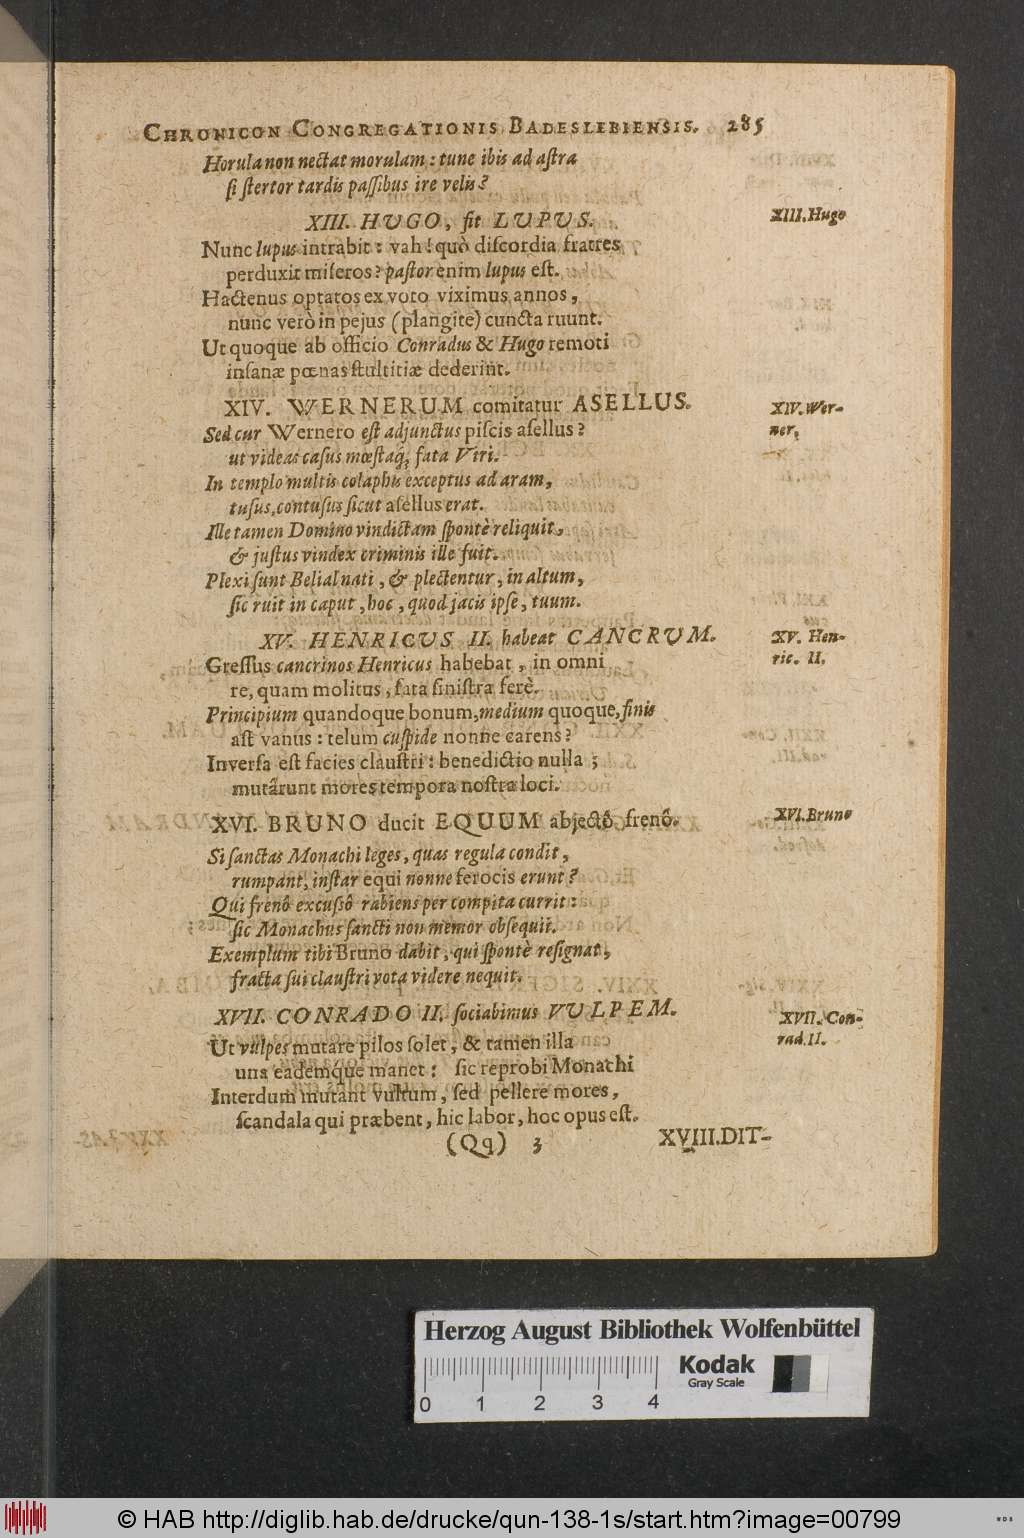 CHRONICON CONGREGATIONIS BADESLEBIENSIS. 285
Horula non nectat morulam: tunc ibis ad aſtra
ſi ſtertor tardis paſſibus ire velis?
XIII. HUGO, ſit LUPUS.
XIII. Hugo
Nunc lupus intrabit: vah! quò diſcordia fratres
perduxit miſeros? paſtor enim lupus eſt.
Hactenus optatos ex voto viximus annos,
nunc verò in pejus (plangite) cuncta ruunt.
Ut quoque ab officio Conradus & Hugo remoti
inſanæ pœnas ſtultitiæ dederint.
XIV. WERNERUM comitatur ASELLUS.
XIV. Wer-
ner,
Sed cur Wernero eſt adjunctus piſcis aſellus?
ut videas caſus mœſtaq; fata Viri.
In templo multis colaphis exceptus ad aram,
tuſus, contuſus ſicut aſellus erat.
Ille tamen Domino vindictam ſpontè reliquit,
& juſtus vindex criminis ille fuit.
Plexi ſunt Belial nati, & plectentur, in altum,
ſic ruit in caput, hoc, quod jacis ipſe, tuum.
XV. HENRICUS II. habeat CANCRUM.
XV. Hen-
ric. II.
Greſſus cancrinos Henricus habebat, in omni
re, quam molitus, fata ſiniſtra ferè.
Principium quandoque bonum, medium quoque, finis
aſt vanus: telum cuſpide nonne carens?
Inverſa eſt facies clauſtri: benedictio nulla;
mutârunt mores tempora noſtra loci.
XVI. BRUNO ducit EQUUM abjectô frenô.
XVI. Bruno
Si ſanctas Monachi leges, quas regula condit,
rumpant, inſtar equi nonne ferocis erunt?
Qui frenô excuſſô rabiens per compita currit:
ſic Monachus ſancti non memor obſequii.
Exemplum tibi Bruno dabit, qui ſpontè reſignat,
fracta ſui clauſtri vota videre nequit.
XVII. CONRADO II. ſociabimus VULPEM.
XVII. Con-
rad. II.
Ut vulpes mutare pilos ſolet, & tamen illa
una eademque manet: ſic reprobi Monachi
Interdum mutant vultum, ſed pellere mores,
ſcandala qui præbent, hic labor, hoc opus eſt.
(Qq) 3 XVIII. DIT-
Herzog August Bibliothek Wolfenbüttel
0 1 2 3 4
Kodak
Gray Scale
© HAB http://diglib.hab.de/drucke/qun-138-1s/start.htm?image=00799